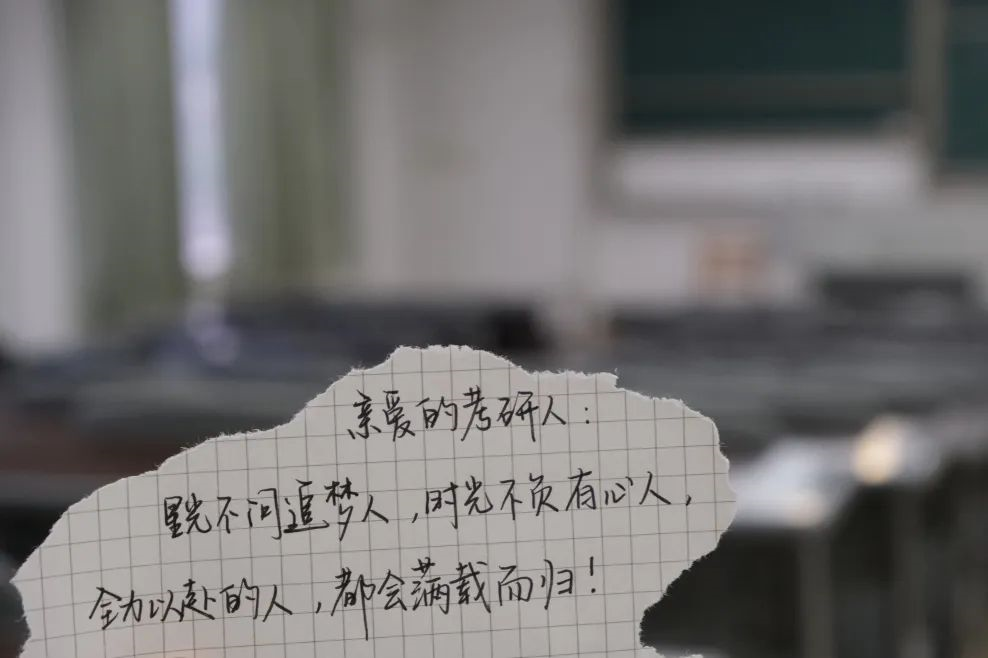 亲爱的考研人：
星光不问追梦人，时光不负有心人，
全力以赴的人，都会满载而归！